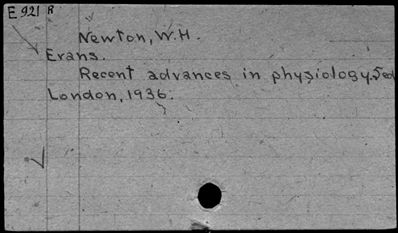 E 921 R
Newton, W.H.
Evans.
Recent advances in physiology. 5ed
London, 1936.